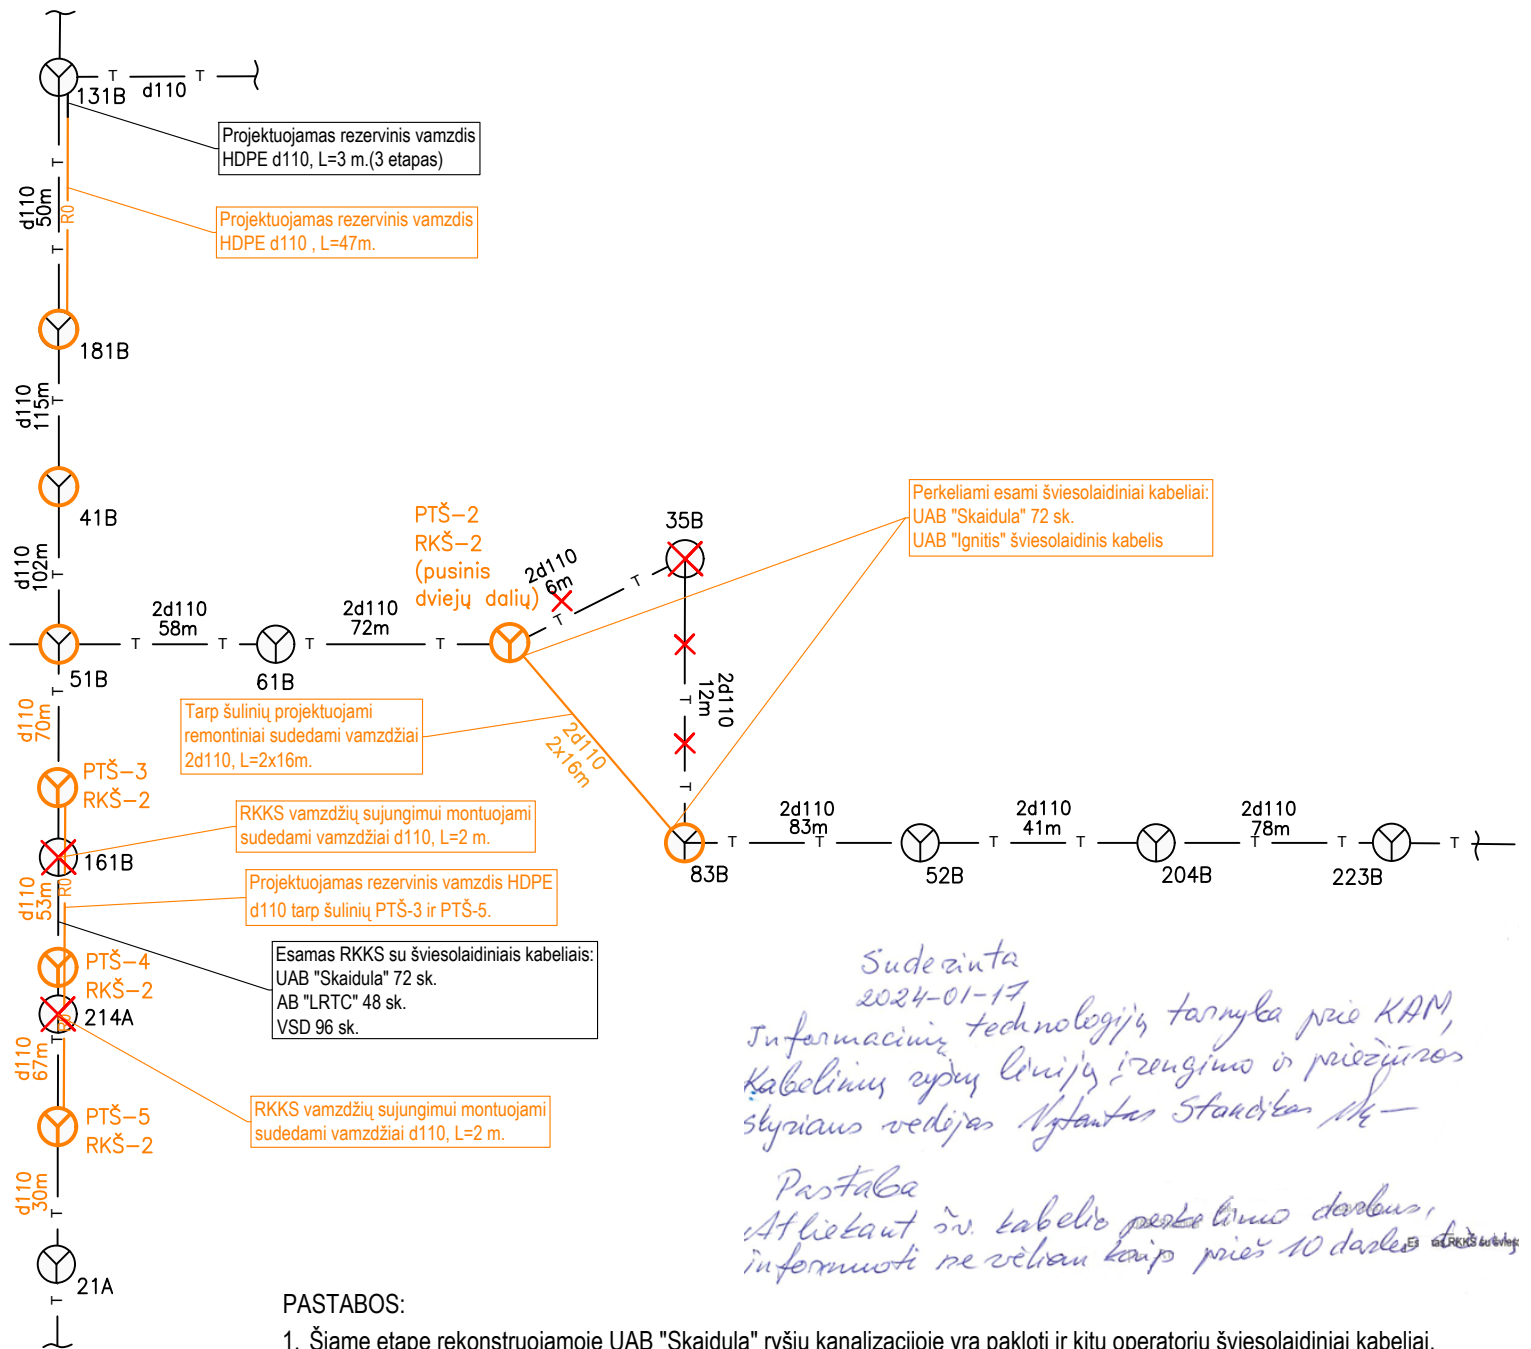 T T
131B d110
Projektuojamas rezervinis vamzdis
HDPE d110, L=3 m.(3 etapas)
T
d110
50m
R0
T
Projektuojamas rezervinis vamzdis
HDPE d110 , L=47m.
181B
d110
115m
T
41B
d110
102m
T
PTŠ-2
RKŠ-2
(pusinis
dviejų dalių)
2d110
6m
T
T
35B
Perkeliami esami šviesolaidiniai kabeliai:
UAB "Skaidula" 72 sk.
UAB "Ignitis" šviesolaidinis kabelis
2d110
58m
T T
2d110
72m
T T
51B
61B
T
d110
70m
T
2d110
12m
T
Tarp šulinių projektuojami
remontiniai sudedami vamzdžiai
2d110, L=2x16m.
2d110
2x16m
PTŠ-3
RKŠ-2
RKKS vamzdžių sujungimui montuojami
sudedami vamzdžiai d110, L=2 m.
161B
2d110
83m
T T
2d110
41m
T T
2d110
78m
T T
83B
52B
204B
223B
d110
53m
R0
Projektuojamas rezervinis vamzdis HDPE
d110 tarp šulinių PTŠ-3 ir PTŠ-5.
PTŠ-4
RKŠ-2
Esamas RKKS su šviesolaidiniais kabeliais:
UAB "Skaidula" 72 sk.
AB "LRTC" 48 sk.
VSD 96 sk.
214A
R0
T
d110
67m
PTŠ-5
RKŠ-2
RKKS vamzdžių sujungimui montuojami
sudedami vamzdžiai d110, L=2 m.
d110
30m
T
21A
T
Suderinta
2024-01-17
Informacinių technologijų tarnyba prie KAM,
Kabelinių ryšių linijų įrengimo ir priežiūros
skyriaus vedėjas Vytautas
Pastaba
Atliekant šv. kabelio perkelimo darbus,
informuoti ne vėliau kaip prieš 10 darbo
PASTABOS:
1. Šiame etape rekonstruojamoje UAB "Skaidula" ryšių kanalizacijoje yra pakloti ir kitų operatorių šviesolaidiniai kabeliai.